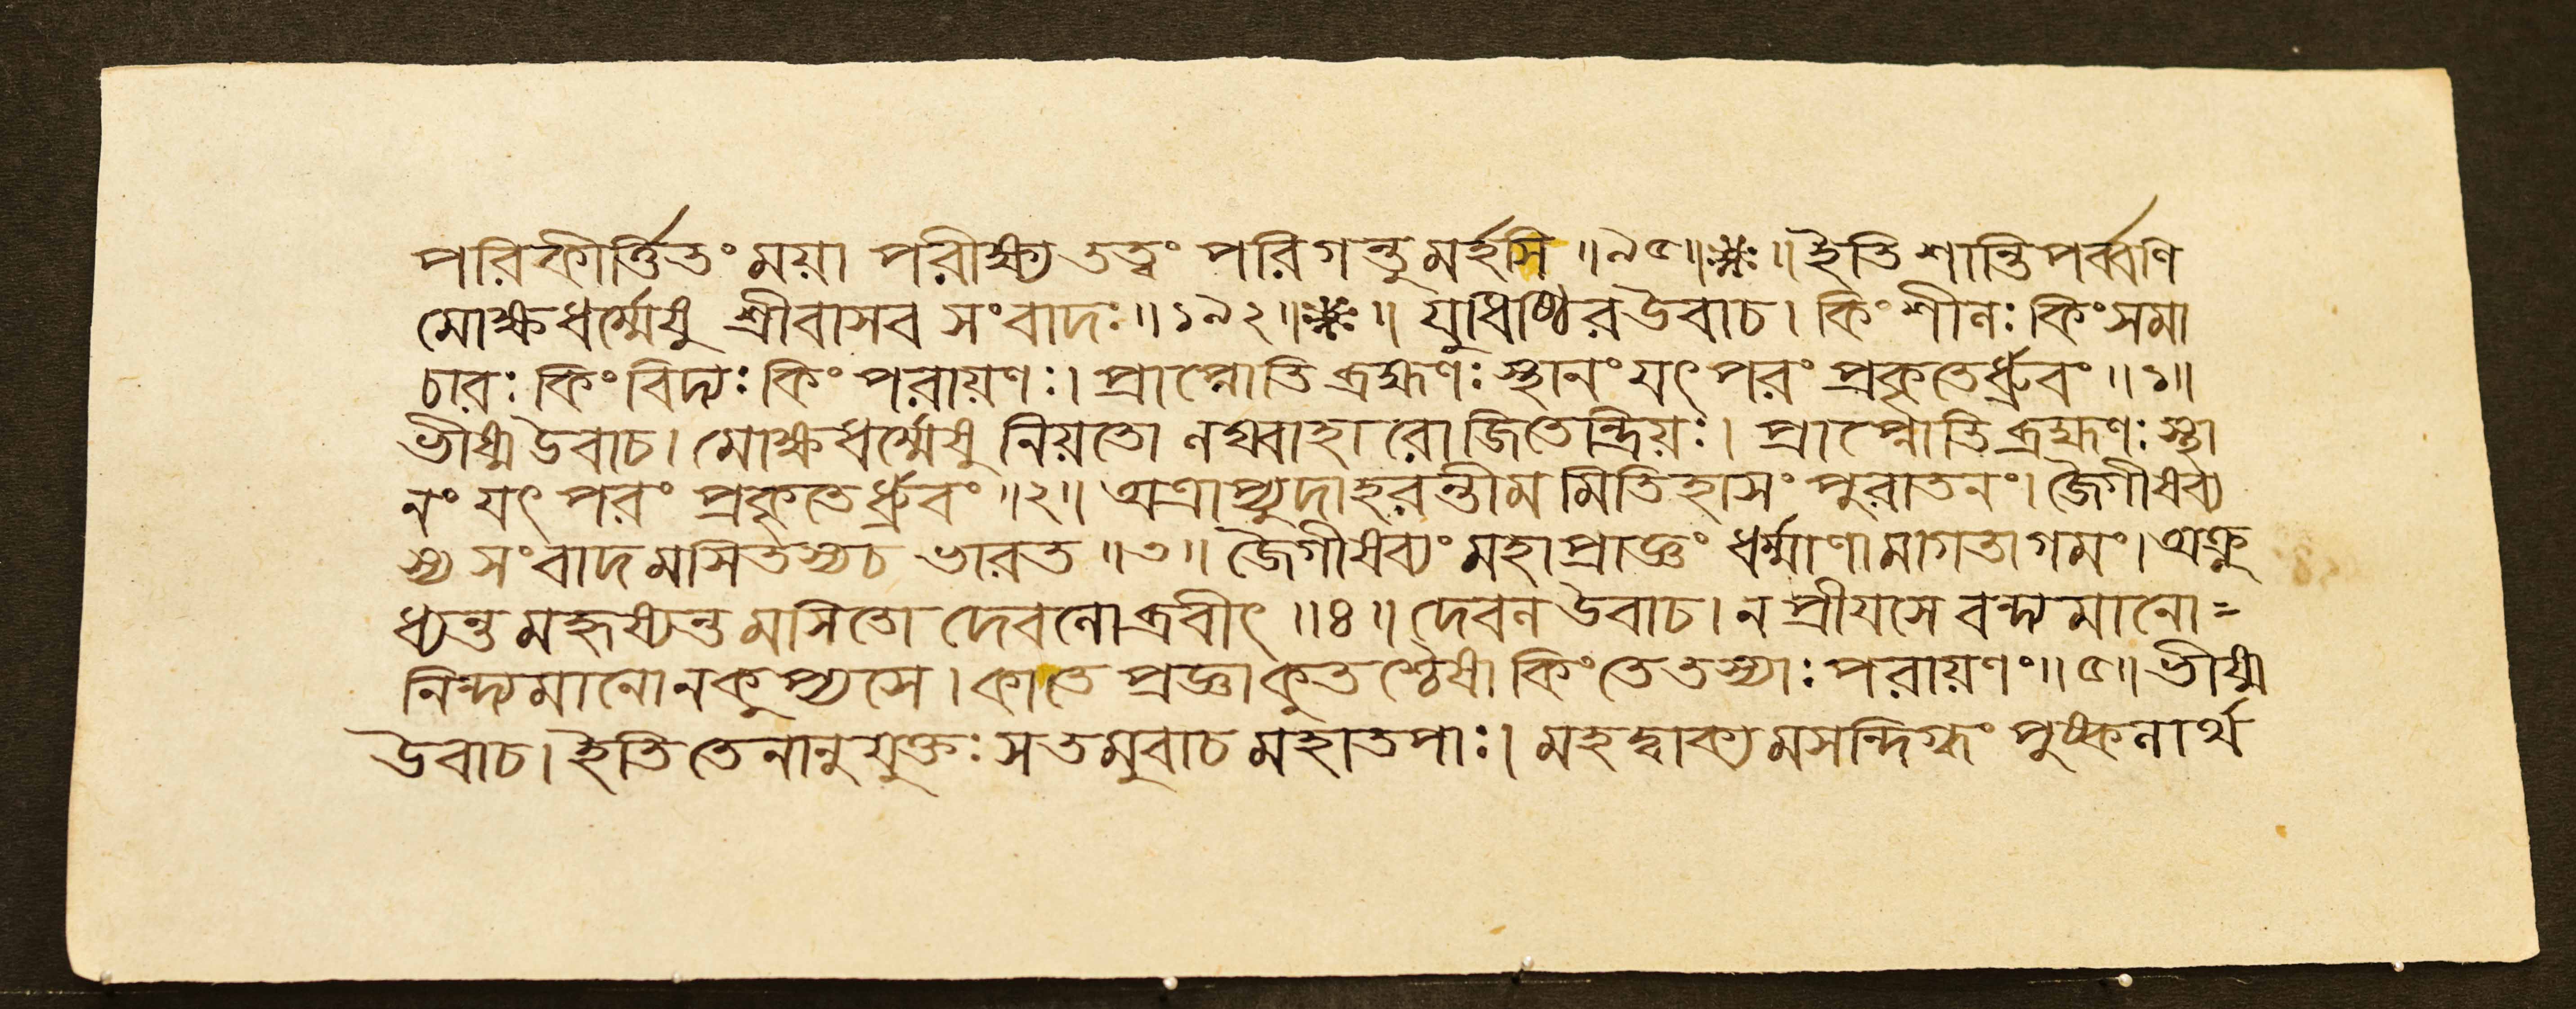 পরিকীর্ত্তিতং ময়া পরীক্ষ্য তত্বং পরিগন্তুমর্হসি ॥৯৫॥❋ঃ॥ ইতি শান্তিপর্ব্বণি
মোক্ষধর্ম্মেষু শ্রীবাসব সংবাদঃ॥১৯২॥❋ঃ॥ যুধিষ্ঠির উবাচ। কিং শীলঃ কিংসমা
চারঃ কিং বিদ্যঃ কিং পরায়ণঃ। প্রাপ্নোতি ব্রহ্মণঃ স্থানং যৎ পরং প্রকৃতের্ধ্রুবং ॥১॥
ভীষ্ম উবাচ। মোক্ষধর্ম্মেষু নিয়তো লঘ্বাহারো জিতেন্দ্রিয়ঃ। প্রাপ্নোতি ব্রহ্মণঃ স্থা
নং যৎ পরং প্রকৃতের্ধ্রুবং ॥২॥ অত্রাপ্যুদাহরন্তীমমিতিহাসং পুরাতনং। জৈগীষব্য
স্য সংবাদমসিতস্যচ ভারত ॥৩॥ জৈগীষব্যং মহাপ্রাজ্ঞং ধর্ম্মাণামাগতাগমং। অক্রু
ধ্যন্তমহৃষ্যন্তমসিতো দেবলোব্রবীৎ ॥৪॥ দেবল উবাচ। ন প্রীযসে বন্দ্যমানো=
নিন্দ্যমানো ন কুপ্যসে। কাতে প্রজ্ঞা কুতশ্চৈষা কিং তে তস্যাঃ পরায়ণং॥৫॥ ভীষ্ম
উবাচ। ইতি তেনানুযুক্তঃ স তমুবাচ মহাতপাঃ। মহদ্বাক্যমসন্দিগ্ধং পুষ্কলার্থ